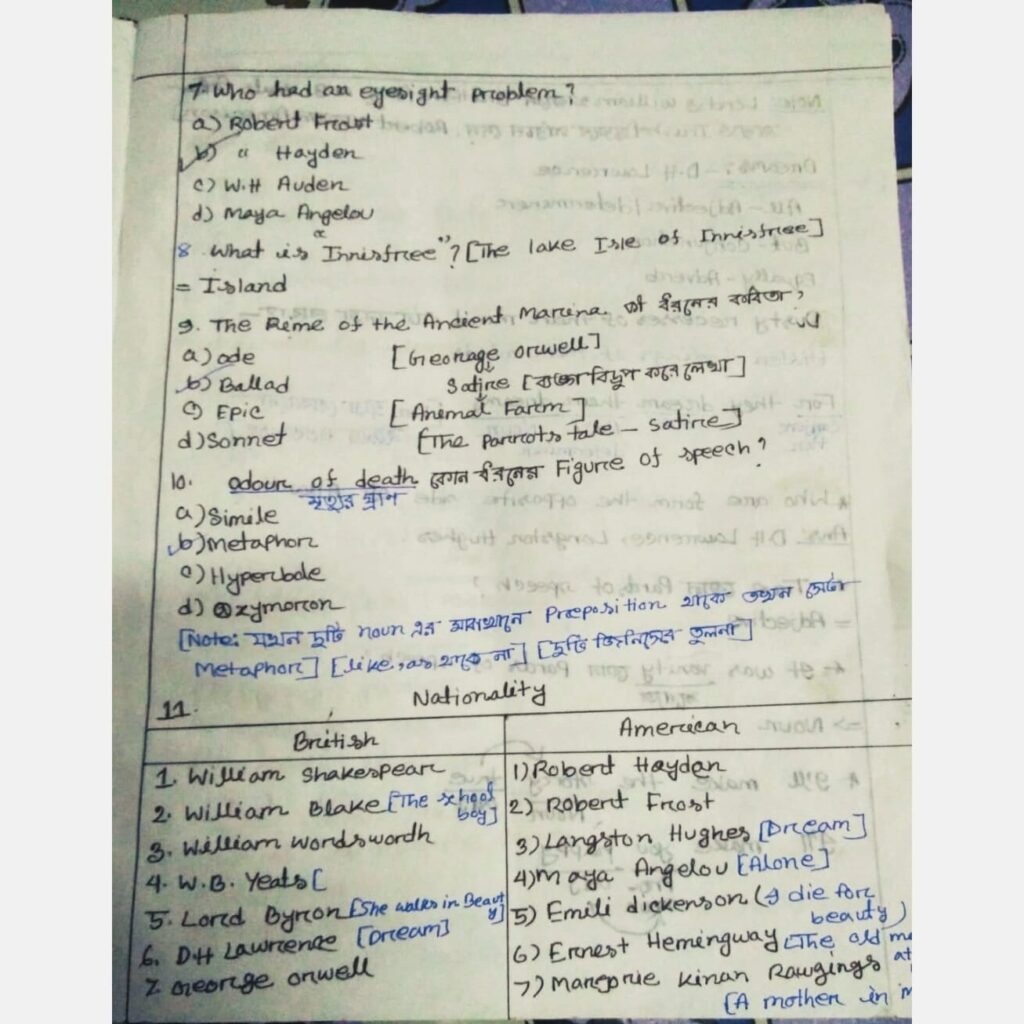 7. Who had an eyesight Problem?
a) Robert Frost
b) " Hayden
c) W.H Auden
d) Maya Angelou
8. What is "Innisfree"? [The lake Isle of Innisfree]
= Island
9. The Rime of the Ancient Marina. কী ধরনের কবিতা?
a) ode [George orwell]
b) Ballad Satire [ব্যঙ্গ বিদ্রুপ করে লেখা]
c) Epic [Animal Farm]
d) Sonnet [The parrots tale – satire]
10. odour of death কোন ধরনের Figure of speech?
মৃত্যুর ঘ্রাণ
a) Simile
b) Metaphor
c) Hyperbole
d) oxymoron
[Note: যখন দুটি noun এর মাঝখানে Preposition থাকে তখন সেটা
Metaphor] [like, as থাকে না] [দুটি জিনিসের তুলনা]
11. Nationality
British American
1. William Shakespear
2. William Blake [The school boy]
3. William wordsworth
4. W.B. Yeats [
5. Lord Byron [She walks in Beauty]
6. D.H Lawrence [Dream]
7. George orwell
1) Robert Hayden
2) Robert Frost
3) Langston Hughes [Dream]
4) Maya Angelou [Alone]
5) Emili dickenson (I die for beauty)
6) Ernest Hemingway [The old
7) Marjorie Kinan Rawgings
[A mother in